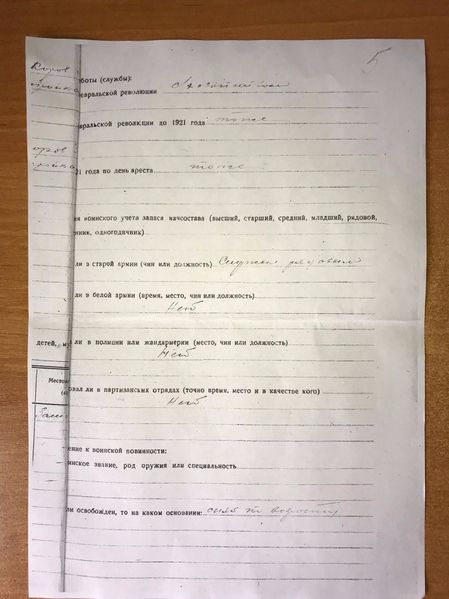 5
Коров
боты (службы):
евральской революции
евральской революции до 1921 года тоже
1 года по день ареста тоже
я воинского учета запаса начсостава (высший, старший, средний, младший, рядовой,
енник, одногодичник)
ли в старой армии (чин или должность) Служил рядовым
ли в белой армии (время, место, чин или должность)
Нет
детей, м
ли в полиции или жандармерии (место, чин или должность)
Нет
Место
овал ли в партизанских отрядах (точно время, место и в качестве кого)
Нет
ение к воинской повинности:
инское звание, род оружия или специальность
ли освобожден, то на каком основании: снят по возрасту